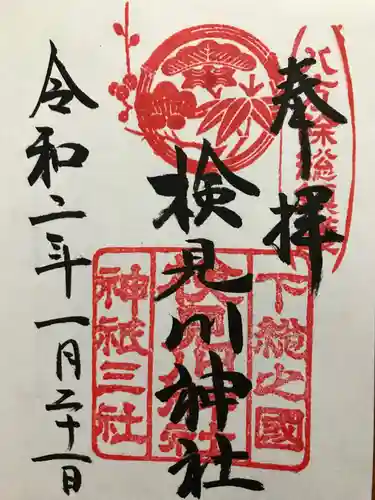 奉拝
検見川神社
令和二年一月二十一日
下總之國
検見川神社
神祇三社